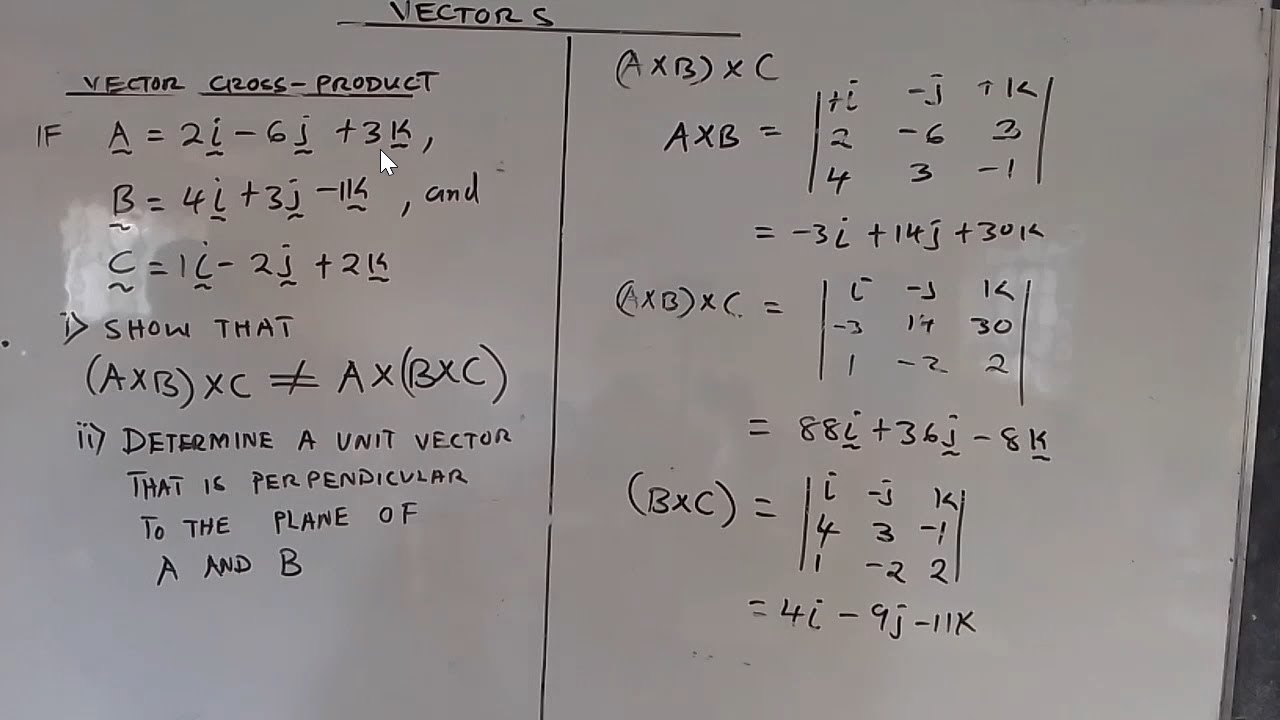 VECTORS
VECTOR CROSS-PRODUCT
IF A = 2i - 6j + 3K,
B = 4i + 3j - 1K, and
C = 1i - 2j + 2K
i) SHOW THAT
(AXB) XC ≠ AX(BXC)
ii) DETERMINE A UNIT VECTOR
THAT IS PERPENDICULAR
TO THE PLANE OF
A AND B
(AXB) X C
AXB = | +i -j +K |
| 2 -6 3 |
| 4 3 -1 |
= -3i + 14j + 30K
(AXB) X C = | i -j K |
| -3 14 30 |
| 1 -2 2 |
= 88i + 36j - 8K
(BXC) = | i -j K |
| 4 3 -1 |
| 1 -2 2 |
= 4i - 9j - 11K